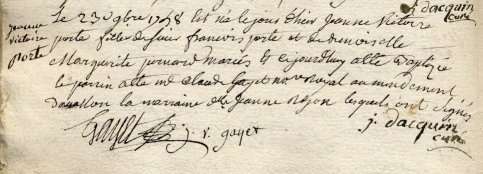 j dacquin
curé
jeanne
victoire
porte
Le 23 9bre 1748 est née le jour d'hier Jeanne Victoire
porte fille de sieur francois porte et de demoiselle
Marguerite mariés et ce jourdhuy esté baptizée
le parrin esté mr Claude Gayet nore royal au mandement
la marraine dlle Jeanne lesquels ont signés
Gayet j. v. gayet
j. dacquin
curé